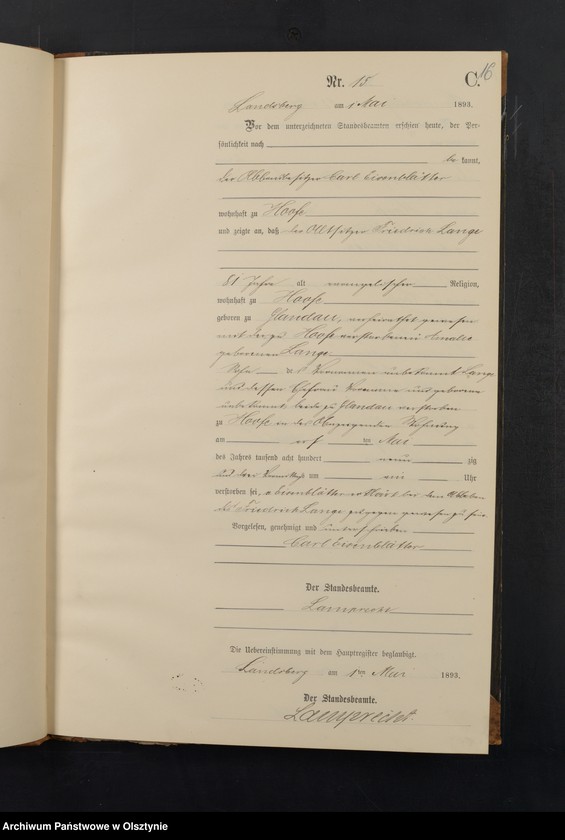 16
Nr. 15 C.
Landsberg am 1 Mai 1893.
Vor dem unterzeichneten Standesbeamten erschien heute, der Per-
sönlichkeit nach
be kannt,
der Carl Eisenblätter
wohnhaft zu Hoofe
und zeigte an, daß der Altsitzer Friedrich Lange
81 Jahre alt evangelischer Religion,
wohnhaft zu Hoofe
geboren zu Glandau, verheirathet gewesen
mit der zu Hoofe verstorbenen Amalie
geborenen Lange
Sohn des Vornamen unbekannt Lange
und dessen Ehefrau Vorname und geborene
unbekannt, beide zu Glandau verstorben
zu Hoofe in der Wohnung
am ersten Mai
des Jahres tausend acht hundert neun zig
und drei Vormittags um ein Uhr
verstorben sei, Eisenblätter erklärt bei dem Ableben
des Friedrich Lange zugegen gewesen zu sein
Vorgelesen, genehmigt und unterschrieben
Carl Eisenblätter
Der Standesbeamte.
Lamprecht
Die Uebereinstimmung mit dem Hauptregister beglaubigt.
Landsberg am 1ten Mai 1893.
Der Standesbeamte.
Lamprecht.
Archiwum Państwowe w Olsztynie